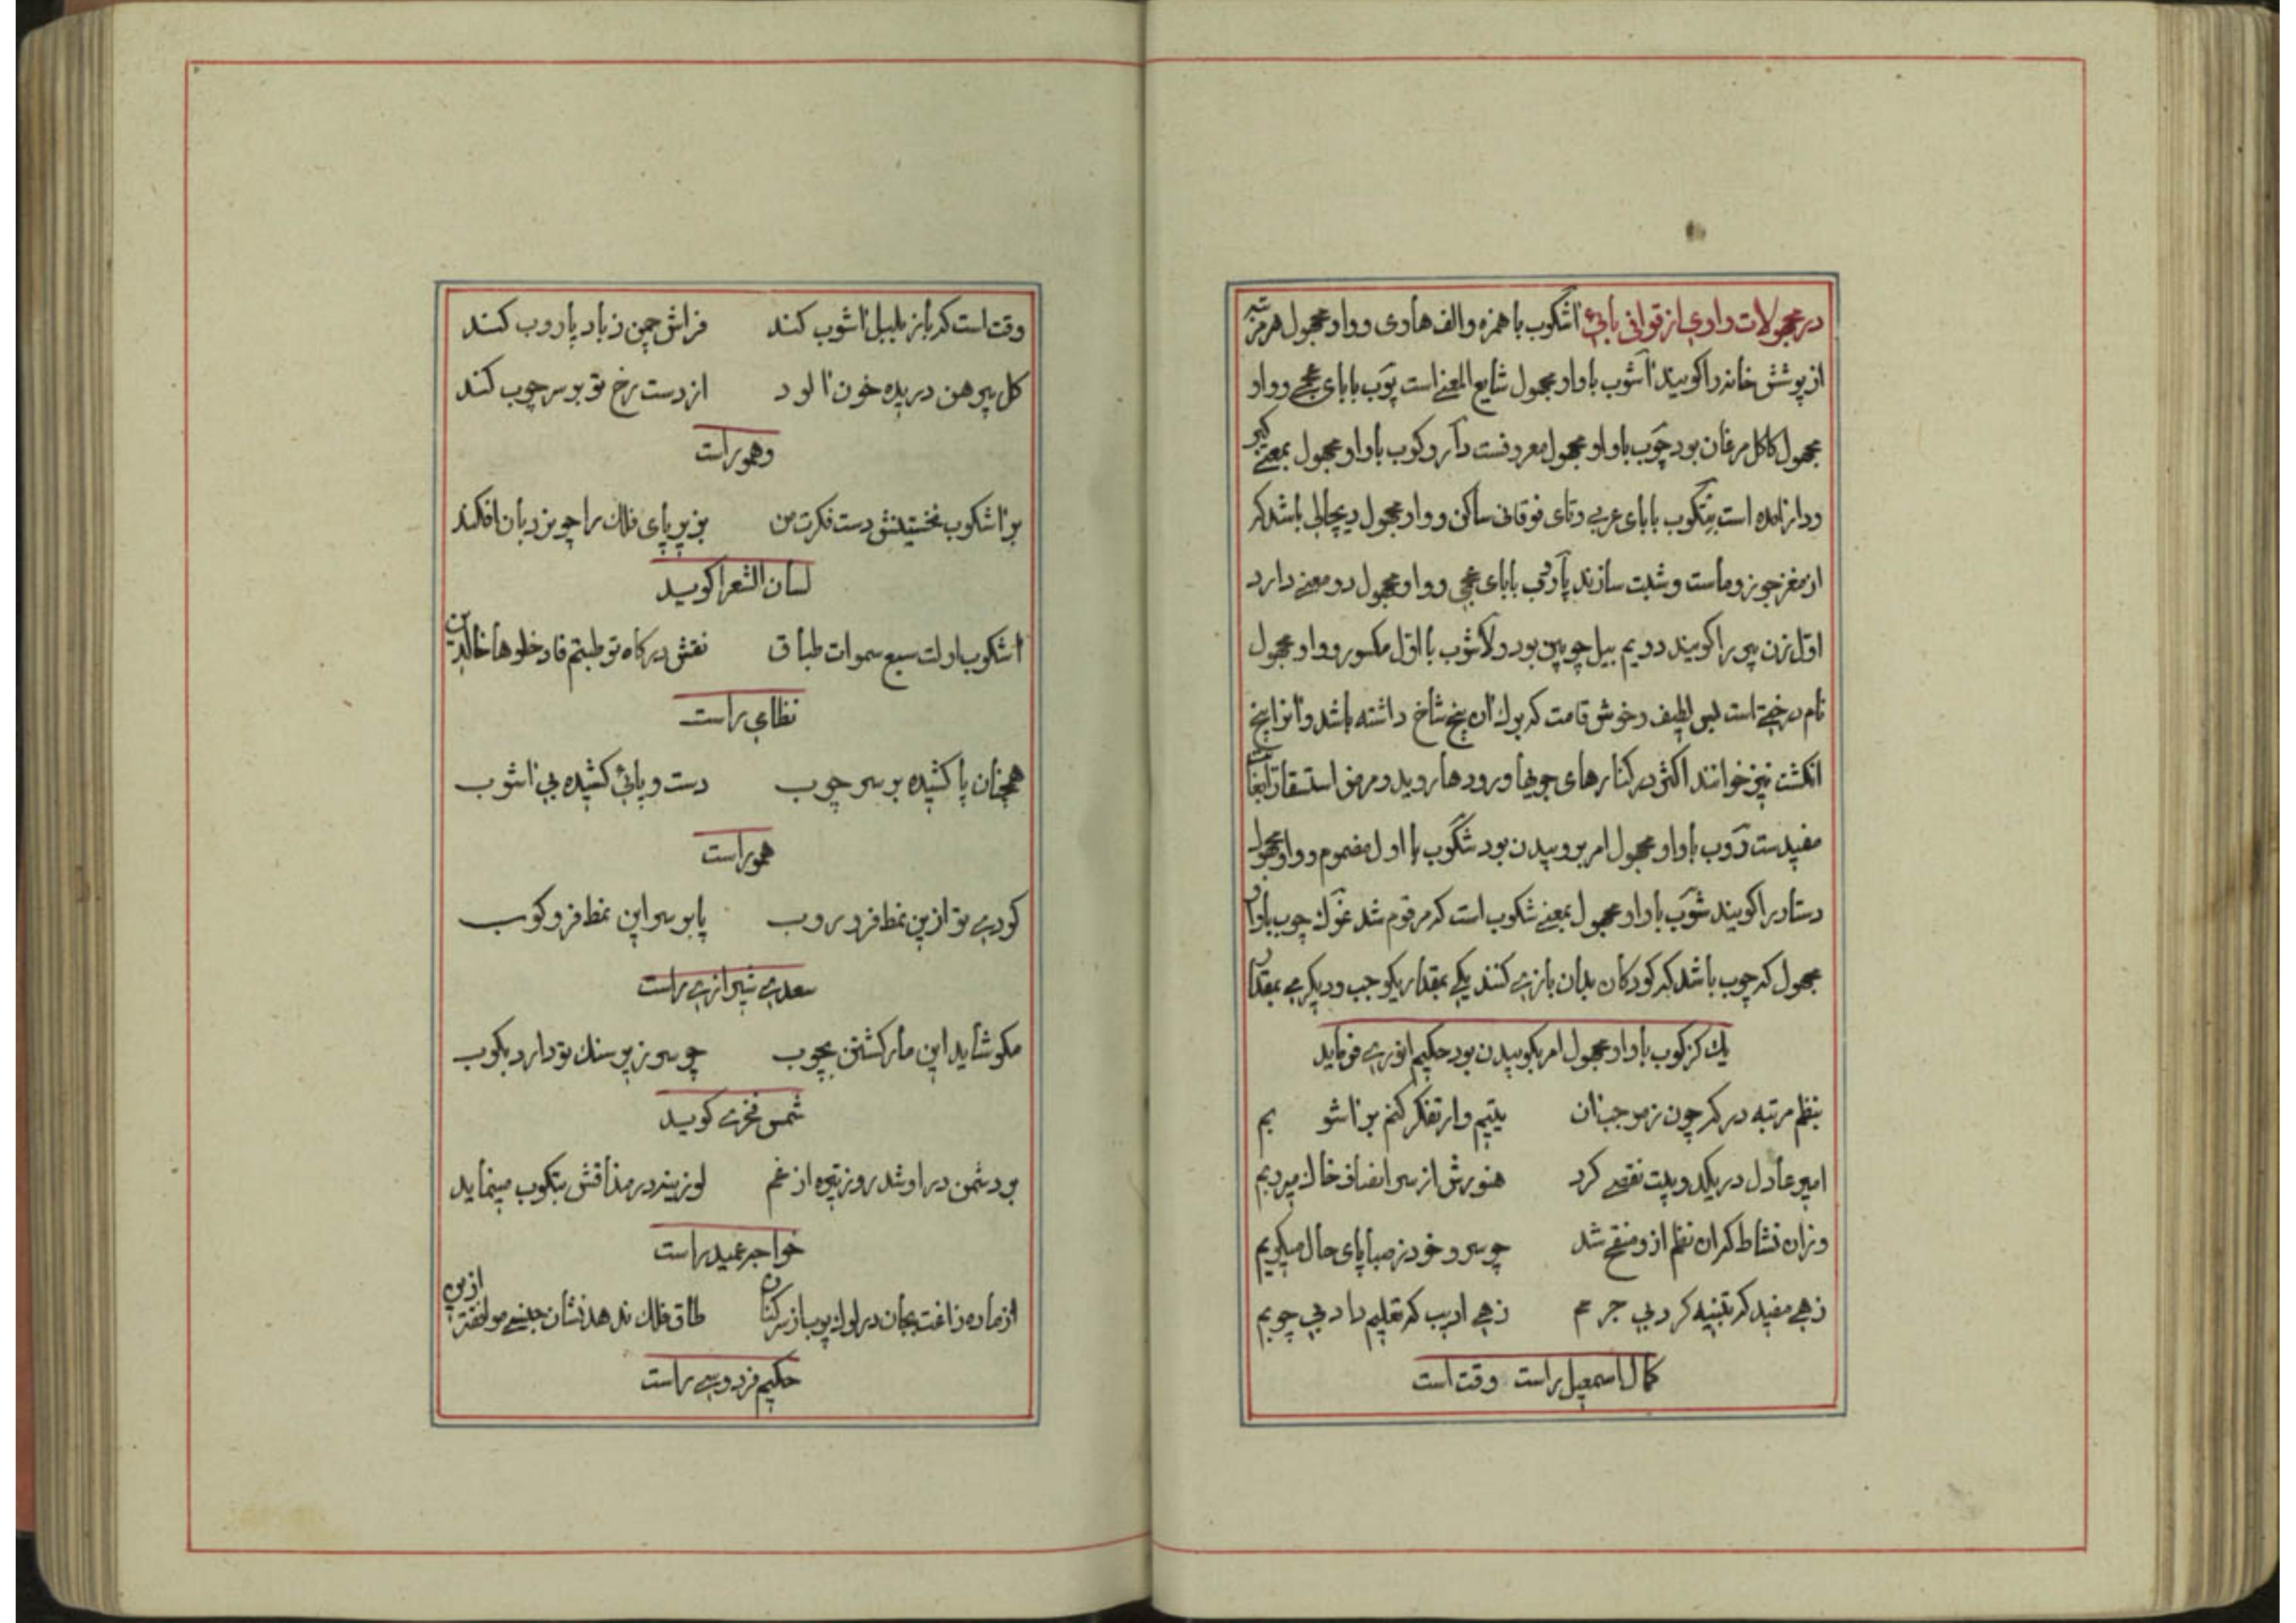 در مجهولات واوی از قوافی بائی آشکوب با همزه والف هاوی وواو مجهول هر مرتبه
از پوشش خانه را کویند آشوب باواو مجهول شایع المعنی است پوب بابای عجمی وواو
مجهول کاکل مرغان بود چوب باواو مجهول معروفست داروکوب باواو مجهول بمعنی کیر
ودار آمده است بتکوب بابای عربی وتای فوقانی ساکن وواو مجهول دیچالی باشد که
از مغز جوز وماست وشبت سازند پاروب بابای عجمی وواو مجهول دو معنی دارد
اول زن پیر را کویند دویم بیل چوبین بود ولاشوب بااول مکسور وواو مجهول
نام درختی است بس لطیف وخوش قامت که برک آن پنج شاخ داشته باشد وآنرا پنج
انکشت نیز خوانند اکثر در کنارهای جویها ورودها روید ومرض استسقا را بغایت
مفیدست روب باواو مجهول امر بروبیدن بود شکوب بااول مضموم وواو مجهول
دستار را کویند شوب باواو مجهول بمعنی شکوب است که مرقوم شد غوک چوب باواو
مجهول که چوب باشد که کودکان بدان بازی کنند یکی بمقدار یکوجب ودیکری بمقدار
یک کز کوب باواو مجهول امر بکوبیدن بود حکیم انوری فرماید
بنظم مرتبه در کر چون ز موجب آن یتیم وار تفکر کنم بر آشو بم
امیر عادل در یکدو بیت نقصی کرد هنورش از سر انصاف خاک میروبم
وزان نشاط که ان نظم ازو منقح شد چو سرو خود ز صبا پای حال میکوبم
زهی مفید که تنبیه کرد بی جرمم زهی ادیب که تعلیم داد بی چوبم
کمال اسمعیل راست وقت است
وقت است که باز بلبل آشوب کند فراش چمن ز باد پاروب کند
کل پیرهن دریده خون آلود از دست رخ تو بر سر چوب کند
وهمو راست
بر آشکوب نخستینش دست فکرت من بزیر پای فلک را چو نردبان افکند
لسان الشعرا کوید
آشکوب اولت سبع سموات طباق نقش درکاه تو طبتم فادخلوها خالدین
نظامی راست
همچنان پا کشیده بر سر چوب دست وپائی کشیده بی آشوب
همو راست
کوری تو ازین نمط فرو روب پا بر سر این نمط فرو کوب
سعدی شیرازی راست
مکو شاید این مار کشتن بچوب چو سر زیر سنک تو دارد بکوب
شمس فخری کوید
بر دشمن در او شد روز تیره از غم لوزینه در مذاقش بتکوب مینماید
خواجه عمید راست
از ماده زاغت بجان در لوک پوب از سر کنان طاق فلک ندهد نشان جنسی مولفتر ازین
حکیم فردوسی راست